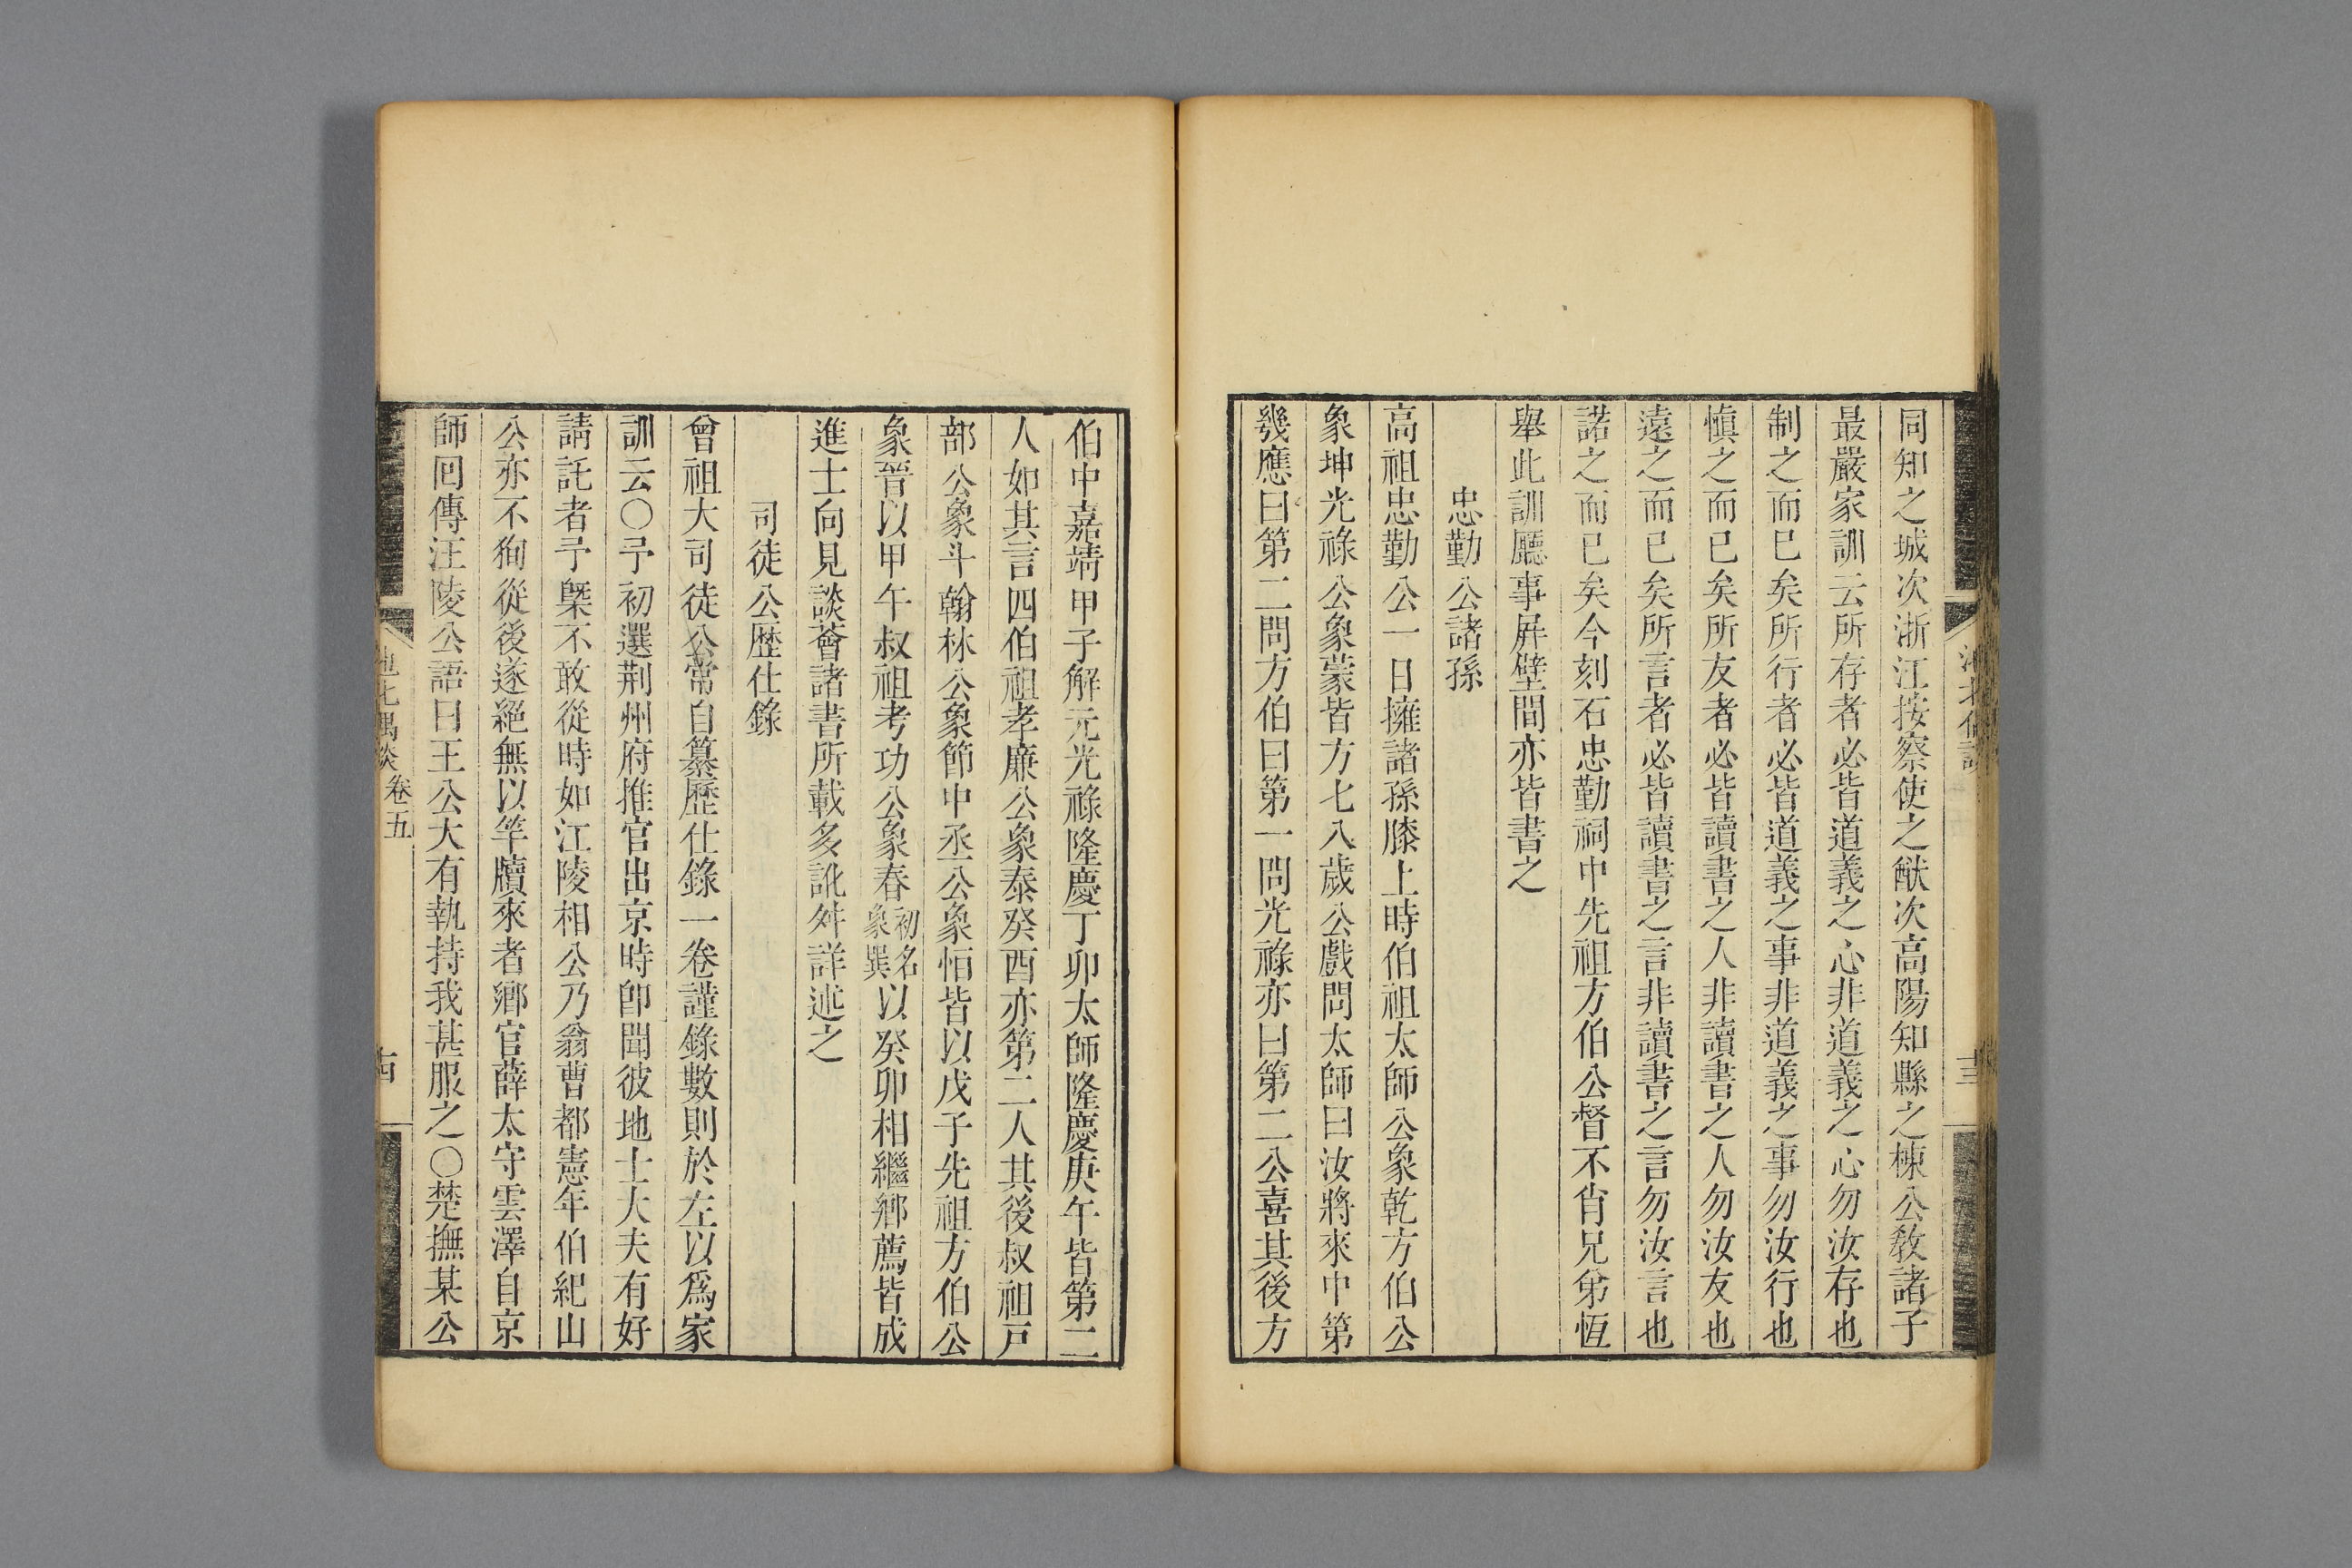 同知之城次浙江按察使之猷次高陽知縣之棟公敎諸子
最嚴家訓云所存者必皆道義之心非道義之心勿汝存也
制之而已矣所行者必皆道義之事非道義之事勿汝行也
愼之而已矣所友者必皆讀書之人非讀書之人勿汝友也
遠之而已矣所言者必皆讀書之言非讀書之言勿汝言也
諾之而已矣今刻石忠勤祠中先祖方伯公督不肖兄弟恆
舉此訓廳事屛壁間亦皆書之
忠勤公諸孫
高祖忠勤公一日擁諸孫膝上時伯祖太師公象乾方伯公
象坤光祿公象蒙皆方七八歲公戲問太師曰汝將來中第
幾應曰第二問方伯曰第一問光祿亦曰第二公喜其後方
伯中嘉靖甲子解元光祿隆慶丁卯太師隆慶庚午皆第二
人如其言四伯祖孝廉公象泰癸酉亦第二人其後叔祖戸
部公象斗翰林公象節中丞公象恒皆以戊子先祖方伯公
象晉以甲午叔祖考功公象春初名象巽以癸卯相繼鄉薦皆成
進士向見談薈諸書所載多訛舛詳述之
司徒公歷仕錄
曾祖大司徒公常自纂歷仕錄一卷謹錄數則於左以爲家
訓云〇予初選荆州府推官出京時卽聞彼地士大夫有好
請託者予槩不敢從時如江陵相公乃翁曹都憲年伯紀山
公亦不狥從後遂絕無以竿牘來者鄉官薛太守雲澤自京
師回傳江陵公語曰王公大有執持我甚服之〇楚撫某公
池北偶談
卷五
十四
十三